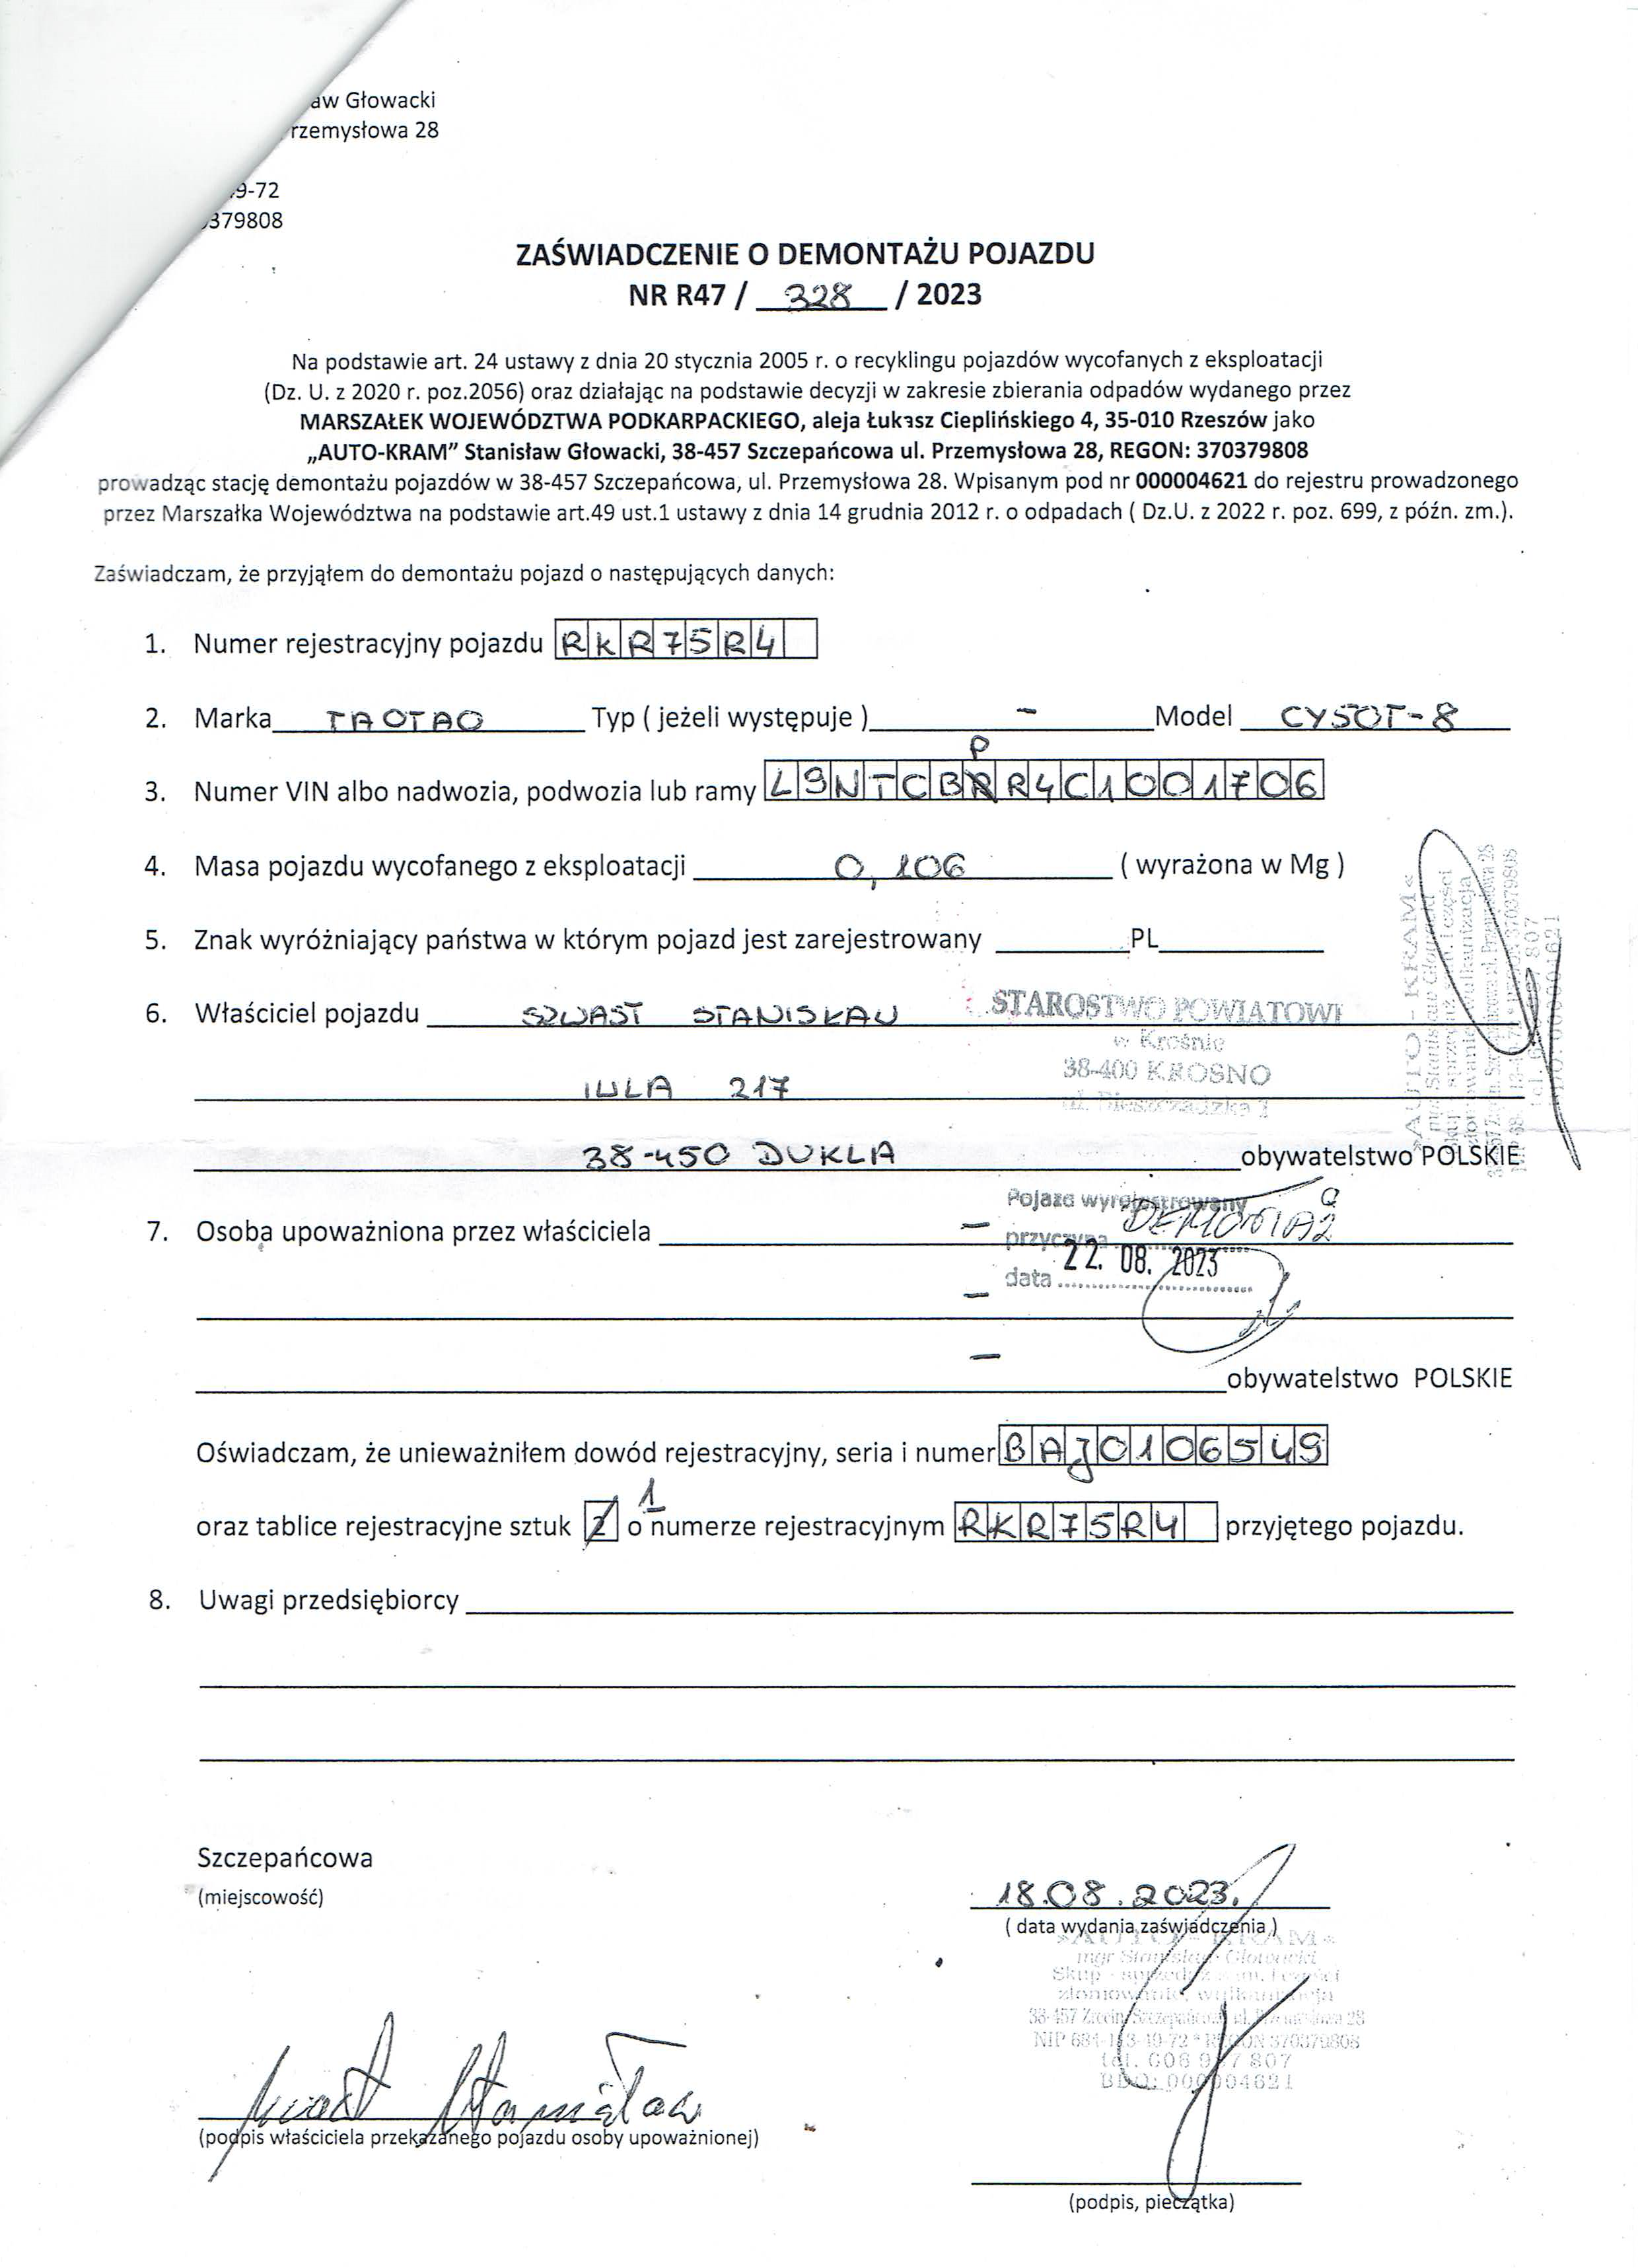 aw Głowacki
rzemysłowa 28
9-72
379808
ZAŚWIADCZENIE O DEMONTAŻU POJAZDU
NR R47 / 328 / 2023
Na podstawie art. 24 ustawy z dnia 20 stycznia 2005 r. o recyklingu pojazdów wycofanych z eksploatacji
(Dz. U. z 2020 r. poz.2056) oraz działając na podstawie decyzji w zakresie zbierania odpadów wydanego przez
MARSZAŁEK WOJEWÓDZTWA PODKARPACKIEGO, aleja Łukasz Cieplińskiego 4, 35-010 Rzeszów jako
„AUTO-KRAM” Stanisław Głowacki, 38-457 Szczepańcowa ul. Przemysłowa 28, REGON: 370379808
prowadząc stację demontażu pojazdów w 38-457 Szczepańcowa, ul. Przemysłowa 28. Wpisanym pod nr 000004621 do rejestru prowadzonego
przez Marszałka Województwa na podstawie art.49 ust.1 ustawy z dnia 14 grudnia 2012 r. o odpadach ( Dz.U. z 2022 r. poz. 699, z późn. zm.).
Zaświadczam, że przyjąłem do demontażu pojazd o następujących danych:
1. Numer rejestracyjny pojazdu RKR75R4
2. Marka TAOTAO Typ ( jeżeli występuje ) - Model CY50T-8
P
3. Numer VIN albo nadwozia, podwozia lub ramy L9NTCBRR4C1001706
4. Masa pojazdu wycofanego z eksploatacji 0,106 ( wyrażona w Mg )
5. Znak wyróżniający państwa w którym pojazd jest zarejestrowany PL
6. Właściciel pojazdu SZWAST STANISŁAW
STAROSTWO POWIATOWE
w Krośnie
38-400 KROSNO
ul. Bieszczadzka 1
IWLA 217
38-450 DUKLA obywatelstwo POLSKIE
Pojazd wyrejestrowany
7. Osoba upoważniona przez właściciela -
przyczyna DEMONTAŻ
data 22. 08. 2023
-
- obywatelstwo POLSKIE
Oświadczam, że unieważniłem dowód rejestracyjny, seria i numer BAJ0106549
1
oraz tablice rejestracyjne sztuk 2 o numerze rejestracyjnym RKR75R4 przyjętego pojazdu.
8. Uwagi przedsiębiorcy
Szczepańcowa
(miejscowość)
18.08.2023.
( data wydania zaświadczenia )
»AUTO - KRAM«
mgr Stanisław Głowacki
złomowanie, wulkanizacja
NIP 684-113-49-72 * REGON 370379808
BDO: 000004621
Szwast Stanisław
(podpis właściciela przekazanego pojazdu osoby upoważnionej)
(podpis, pieczątka)